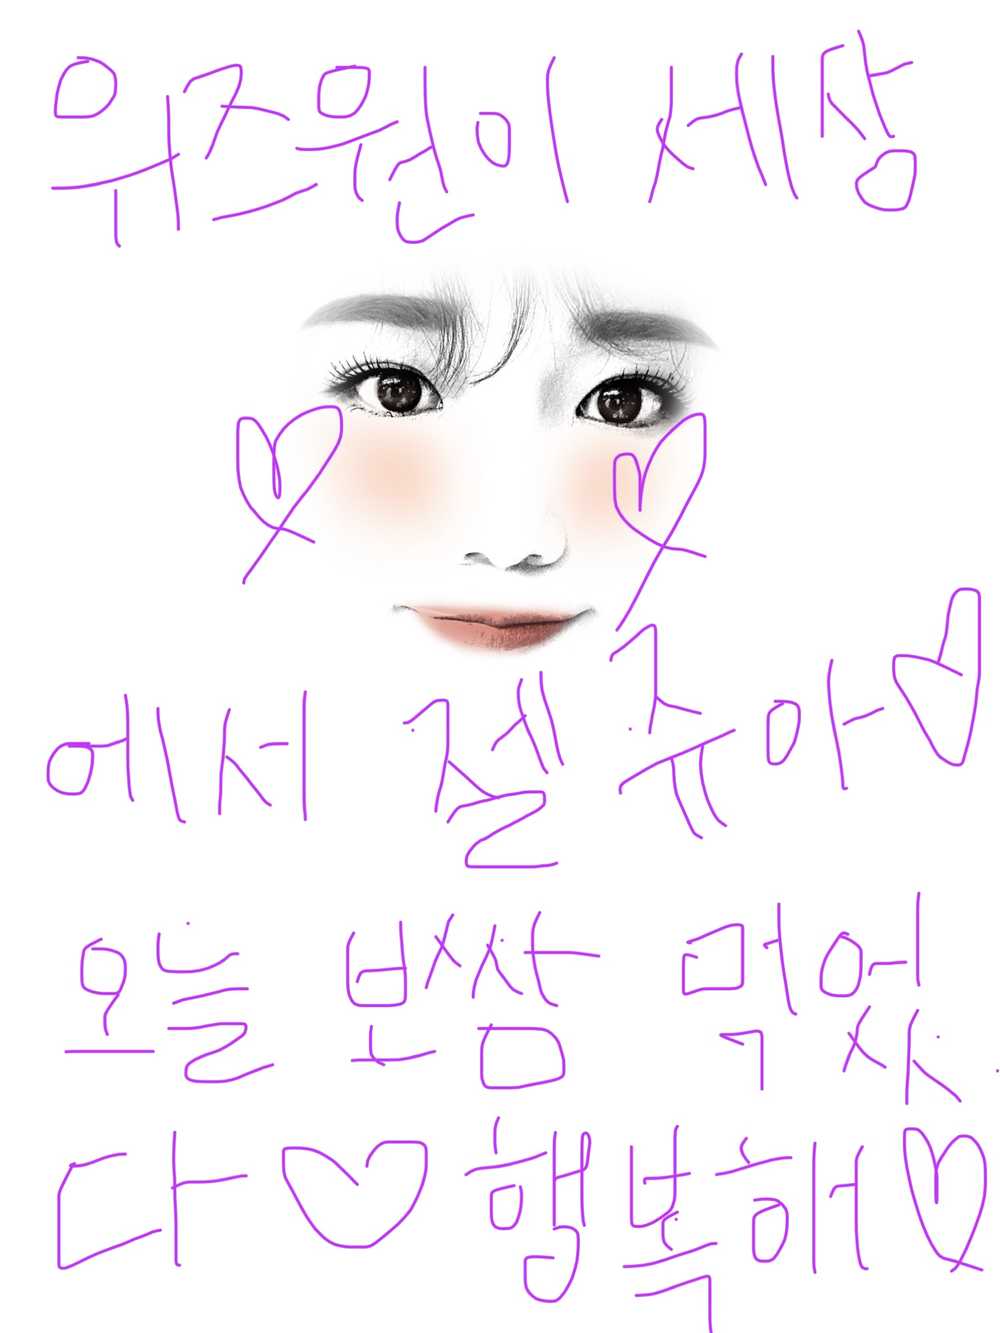 위즈원이 세상
에서 젤 쥬아
오늘 보쌈 먹었
다 행복해